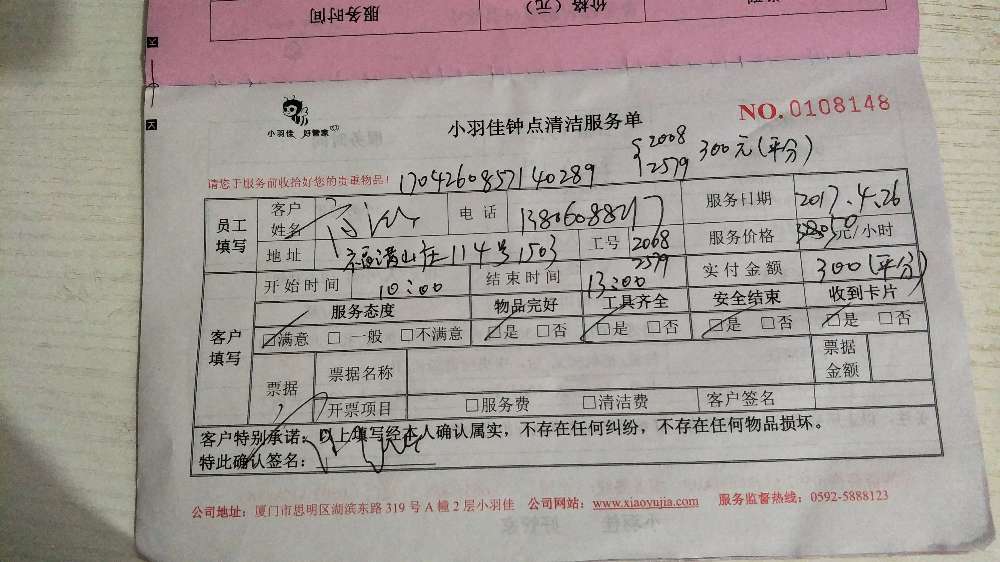 服务时间
价格（元）
小羽佳 好管家
小羽佳钟点清洁服务单
NO. 0108148
2008
2579 300元(平分)
请您于服务前收拾好您的贵重物品！ 1704260857140289
员工填写
客户姓名
电话
服务日期 2017.4.26
地址 福满山庄114号1503
工号 2068 2579
服务价格 元/小时
开始时间 10:00
结束时间 13:00
实付金额 300(平分)
客户填写
服务态度 物品完好 工具齐全 安全结束 收到卡片
☑满意 □ 一般 □不满意 ☑是 □否 ☑是 □否 ☑是 □否 ☑是 □否
票据
票据名称
票据金额
开票项目 □服务费 □清洁费 客户签名
客户特别承诺：以上填写经本人确认属实，不存在任何纠纷，不存在任何物品损坏。
特此确认签名：
公司地址：厦门市思明区湖滨东路 319 号 A 幢 2 层小羽佳 公司网站：www.xiaoyujia.com 服务监督热线：0592-5888123